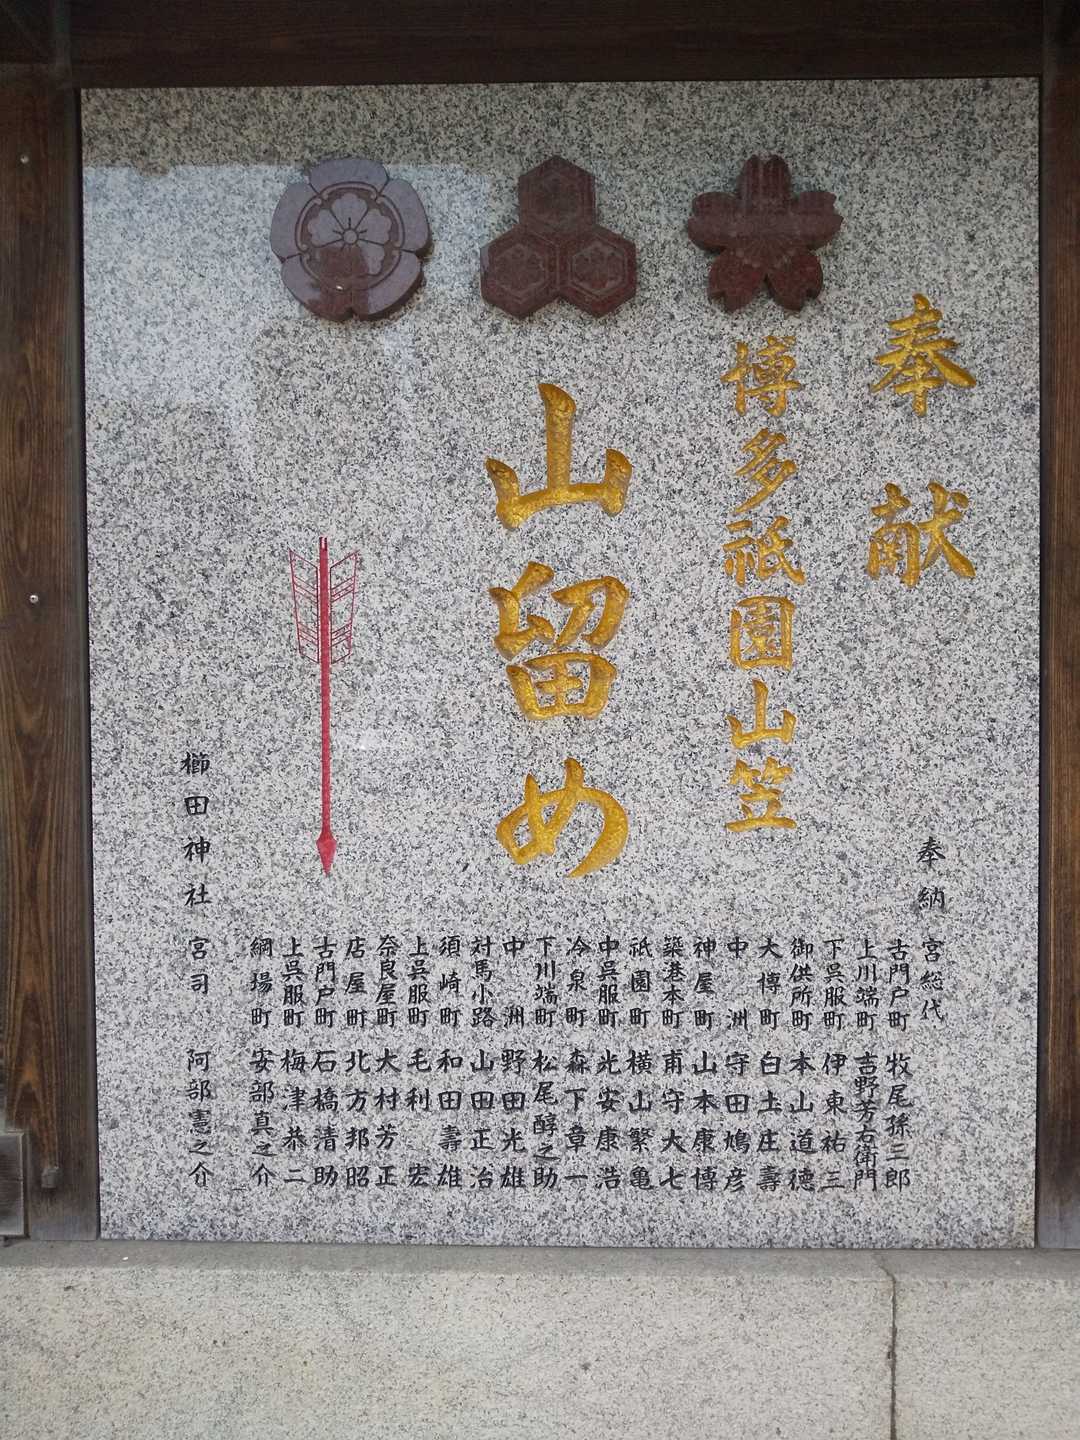 奉献
博多祇園山笠
山留め
奉納 宮総代
古門戸町 牧尾孫三郎
上川端町 吉野芳右衛門
下呉服町 伊東祐三
御供所町 本山道德
大博町 白土庄壽
中洲 守田鳩彦
神屋町 山本康博
築港本町 甫守大七
祇園町 横山繁亀
中呉服町 光安康浩
冷泉町 森下章一
下川端町 松尾醇之助
中洲 野田光雄
対馬小路 山田正治
須崎町 和田壽雄
上呉服町 毛利宏
奈良屋町 大村芳正
店屋町 北方邦昭
古門戸町 石橋清助
上呉服町 梅津恭二
綱場町 安部真之介
櫛田神社 宮司 阿部憲之介